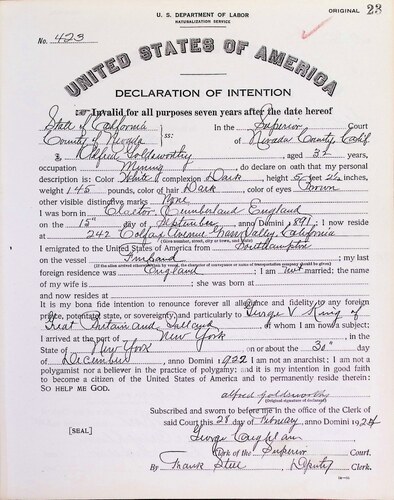 U. S. DEPARTMENT OF LABOR
NATURALIZATION SERVICE
ORIGINAL 23
No. 423
UNITED STATES OF AMERICA
DECLARATION OF INTENTION
Invalid for all purposes seven years after the date hereof
State of California
County of Nevada ss: In the Superior Court of Nevada County, Calif.
I, Alfred Goldsworthy, aged 32 years,
occupation Mining, do declare on oath that my personal
description is: Color White, complexion Dark, height 5 feet inches,
weight 145 pounds, color of hair Dark, color of eyes Brown
other visible distinctive marks None
I was born in Cumberland England
on the 15th day of September, anno Domini 1891; I now reside
at 242 Colfax Avenue Grass Valley, California
(Give number, street, city or town, and State)
I emigrated to the United States of America from Southampton
on the vessel; my last
(If the alien arrived otherwise than by vessel, the character of conveyance or name of transportation company should be given)
foreign residence was England; I am not married; the name
of my wife is; she was born at
and now resides at
It is my bona fide intention to renounce forever all allegiance and fidelity to any foreign
prince, potentate, state, or sovereignty, and particularly to George V King of
Great Britain and Ireland, of whom I am now a subject;
I arrived at the port of New York, in the
State of New York, on or about the 30th day
of December, anno Domini 1922; I am not an anarchist; I am not a
polygamist nor a believer in the practice of polygamy; and it is my intention in good faith
to become a citizen of the United States of America and to permanently reside therein:
SO HELP ME GOD.
alfred goldsworthy
(Original signature of declarant)
Subscribed and sworn to before me in the office of the Clerk of
[SEAL] said Court this 28 day of February, anno Domini 1924
George
Clerk of the Superior Court.
By Frank Steel, Deputy Clerk.